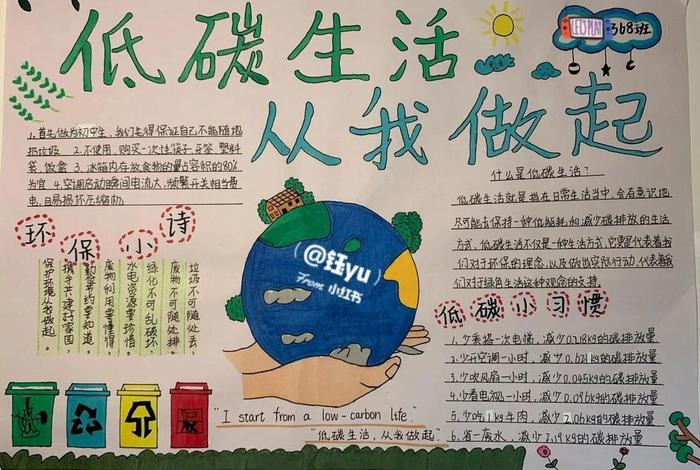 低碳生活
从我做起
LET'S PLAY
368班
1.首先做为初中生，我们先得保证自己不能随地
扔垃圾 2.不使用、购买一次性筷子、牙签、塑料
袋、饭盒 3.冰箱内存放食物的量占容积的80%
为宜 4.空调启动瞬间电流大，频繁开关相当费
电，且易损坏压缩机。
环保小诗
垃圾不可随处丢，
废物不可随处排。
绿化不可乱破坏，
水电资源要珍惜。
废物利用要懂得，
勤俭节约要知道。
携手共建好家园，
保护环境从我做起。
什么是低碳生活？
低碳生活就是指在日常生活当中，会有意识地
尽可能去保持一种低能耗和减少碳排放的生活
方式，低碳生活不仅是一种生活方式，它更是代表着我
们对于环保的理念，以及做出实际行动，代表着我
们对于绿色生活这种观念的支持。
低碳小习惯
1.少乘搭一次电梯，减少0.218kg的碳排放量
2.少开空调一小时，减少0.621kg的碳排放量
3.少吹风扇一小时，减少0.045kg的碳排放量
4.少看电视一小时，减少0.096kg的碳排放量
5.少吃1kg牛肉，减少2.06kg的碳排放量
6.省一度水，减少2.19kg的碳排放量
@钰yu
From 小红书
"I start from a low-carbon life."
"低碳生活，从我做起"